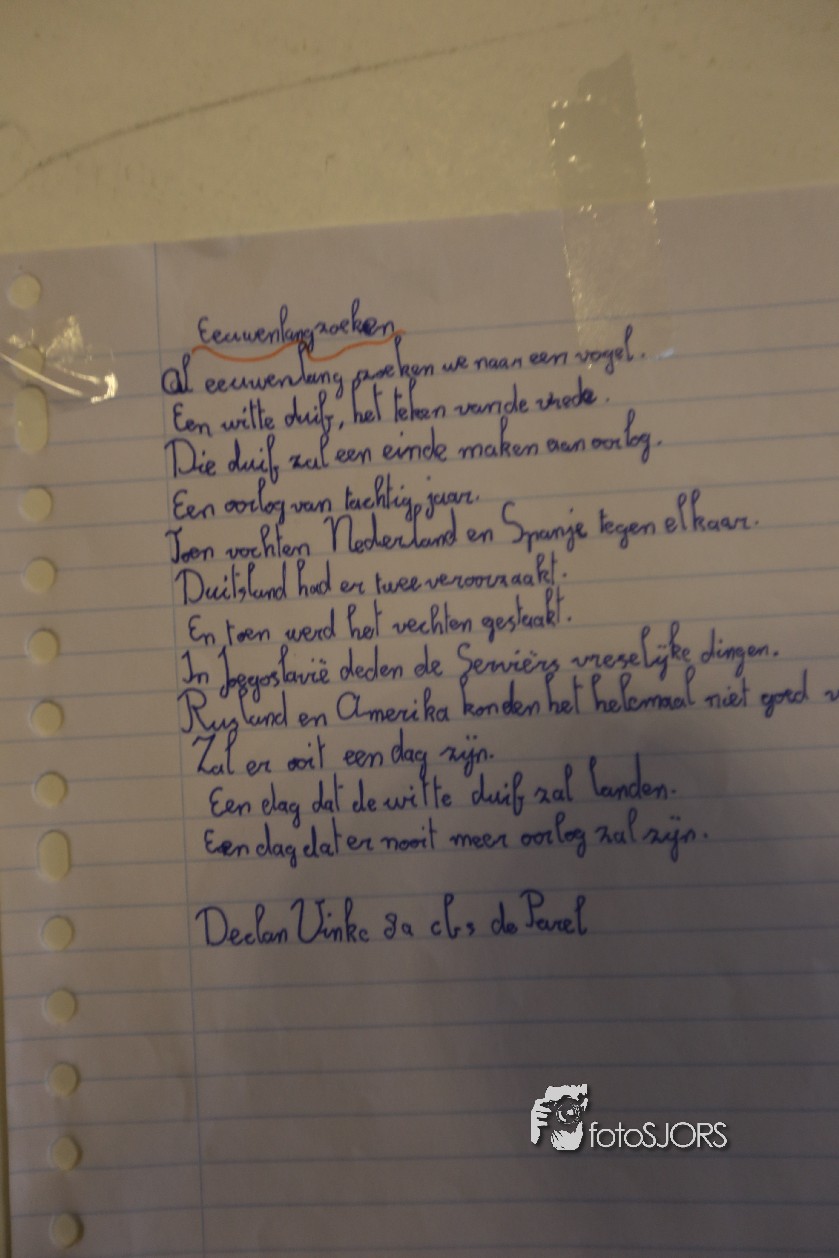 Eeuwenlang zoeken
Al eeuwenlang zoeken we naar een vogel.
Een witte duif, het teken van de vrede.
Die duif zal een einde maken aan oorlog.
Een oorlog van tachtig jaar.
Toen vochten Nederland en Spanje tegen elkaar.
Duitsland had er twee veroorzaakt.
En toen werd het vechten gestaakt.
In Joegoslavië deden de Serviërs vreselijke dingen.
Rusland en Amerika konden het helemaal niet goed
Zal er ooit een dag zijn.
Een dag dat de witte duif zal landen.
Een dag dat er nooit meer oorlog zal zijn.
Declan Vinke 8a cbs de Parel
fotoSJORS